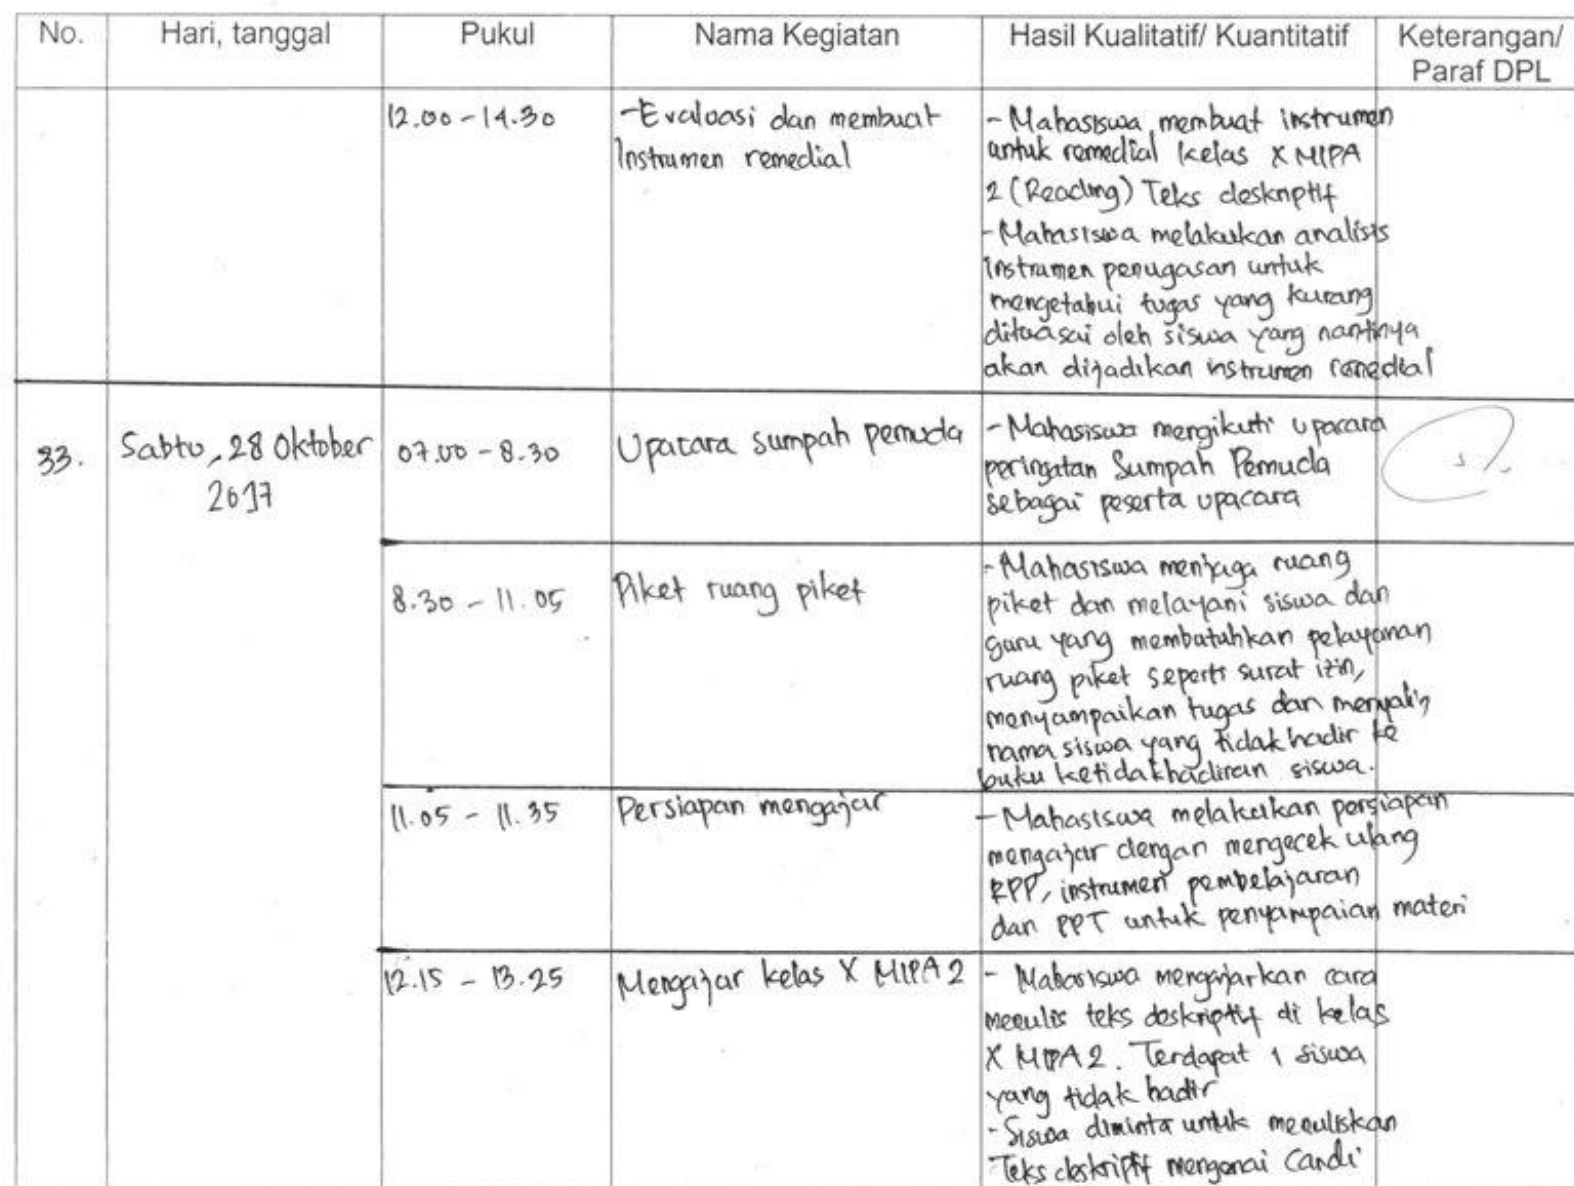 No. Hari, tanggal Pukul Nama Kegiatan Hasil Kualitatif/ Kuantitatif Keterangan/
Paraf DPL
12.00 - 14.30 - Evaluasi dan membuat - Mahasiswa membuat instrumen
Instrumen remedial untuk remedial kelas X MIPA
2 (Reading) Teks deskriptif
- Mahasiswa melakukan analisis
instrumen penugasan untuk
mengetahui tugas yang kurang
dikuasai oleh siswa yang nantinya
akan dijadikan instrumen remedial
33. Sabtu, 28 Oktober 07.00 - 8.30 Upacara sumpah pemuda - Mahasiswa mengikuti upacara
2017 peringatan Sumpah Pemuda
sebagai peserta upacara
8.30 - 11.05 Piket ruang piket - Mahasiswa menjaga ruang
piket dan melayani siswa dan
guru yang membutuhkan pelayanan
ruang piket seperti surat izin,
menyampaikan tugas dan menyalin
nama siswa yang tidak hadir ke
buku ketidakhadiran siswa.
11.05 - 11.35 Persiapan mengajar - Mahasiswa melakukan persiapan
mengajar dengan mengecek ulang
RPP, instrumen pembelajaran
dan PPT untuk penyampaian materi
12.15 - 13.25 Mengajar kelas X MIPA 2 - Mahasiswa mengajarkan cara
menulis teks deskriptif di kelas
X MIPA 2. Terdapat 1 siswa
yang tidak hadir
- Siswa diminta untuk menuliskan
Teks deskriptif mengenai Candi